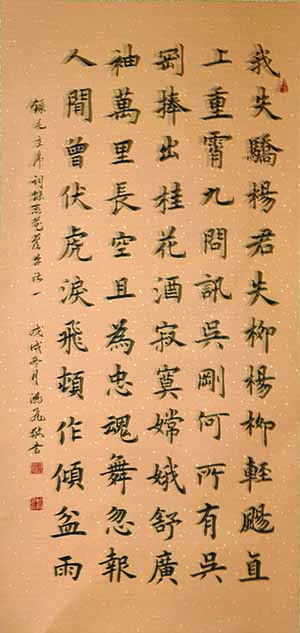 我失驕楊君失柳楊柳輕颺直
上重霄九問訊吳剛何所有吳
剛捧出桂花酒寂寞嫦娥舒廣
袖萬里長空且為忠魂舞忽報
人間曾伏虎淚飛頓作傾盆雨
錄毛主席詞蝶恋花答李淑一 戊戌冬月 飛敬书